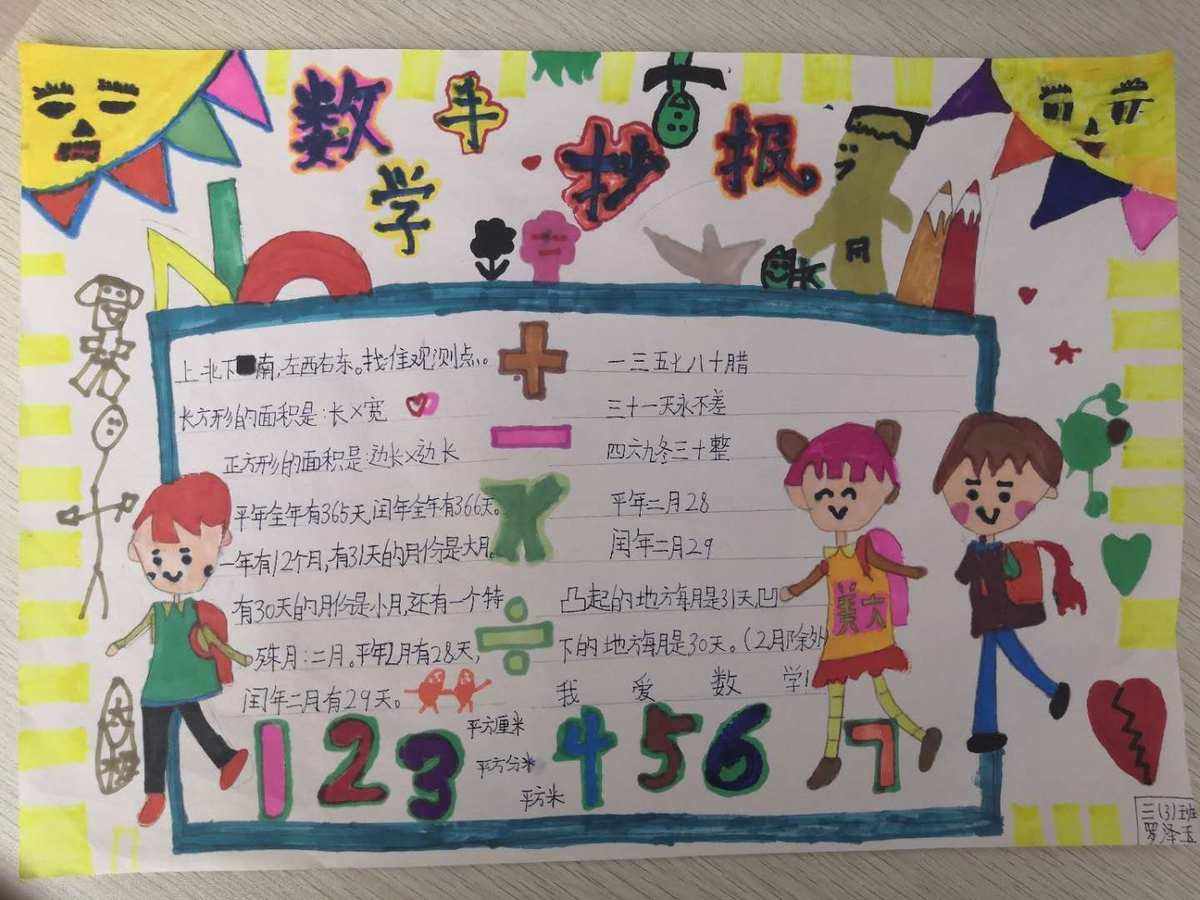 数学手抄报
上北下南,左西右东。找准观测点。
长方形的面积是:长×宽
正方形的面积是边长×边长
平年全年有365天,闰年全年有366天。
一年有12个月,有31天的月份是大月。
有30天的月份是小月,还有一个特
殊月:二月。平年2月有28天,
闰年二月有29天。
+
-
×
÷
一三五七八十腊
三十一天永不差
四六九冬三十整
平年二月28
闰年二月29
凸起的地方每月是31天,凹
下的地方每月是30天。(2月除外
我爱数学!
1 2 3 4 5 6 7
平方厘米
平方分米
平方米
三(3)班
罗泽玉